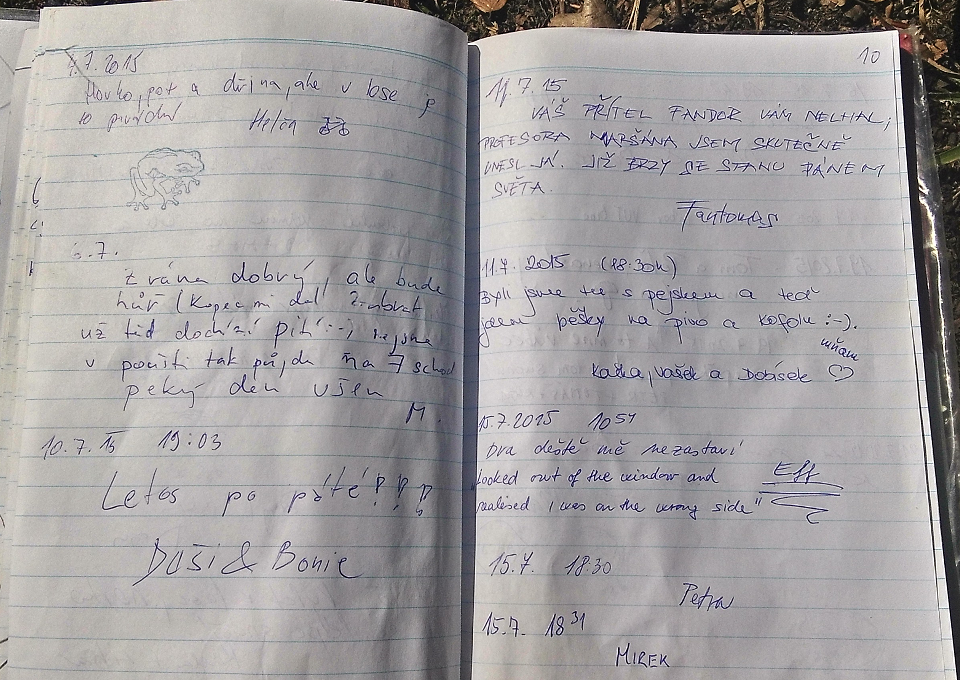 7.7.2015
Horko, pot a dřina, ale v lese je
to prvotní
Helča
6.7.
Z rána dobrý, ale bude
hůř
už teď dochází pití :-)
v poušti tak půjdu na 7 schod
peký den všem
M.
10.7.15 19:03
Letos po páté!!!
Daši & Bonie
10
11.7.15
VÁŠ PŘÍTEL FANDOR VÁM NELHAL,
PROFESORA MARŠÁNA JSEM SKUTEČNĚ
UNESL JÁ. JIŽ BRZY SE STANU PÁNEM
SVĚTA.
Fantomas
11.7.2015 (18.30h)
Byli jsme tu s pejskem a teď
jdem pěšky na pivo a kofolu :-).
mňam
Kačka, Vašek a Dobísek
15.7.2015 10 51
Dva deště mě nezastaví
"Looked out of the window and
realised I was on the wrong side"
Eff
15.7. 18:30
Petra
15.7. 18 31
MIREK